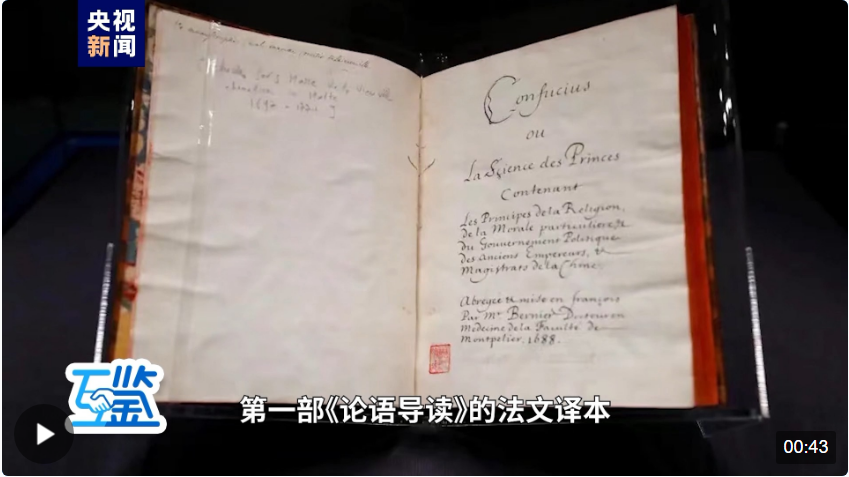 央视
新闻
Confucius
ou
La Science des Princes
Contenant
Les Principes de la Religion,
de la Morale particuliere, &
du Gouvernement Politique
des Anciens Empereurs, &
Magistrats de la Chine.
Abregée & mise en françois
Par Mr Bernier Docteur en
Medecine de la Faculté de
Montpelier, 1688.
互鉴
第一部《论语导读》的法文译本
00:43